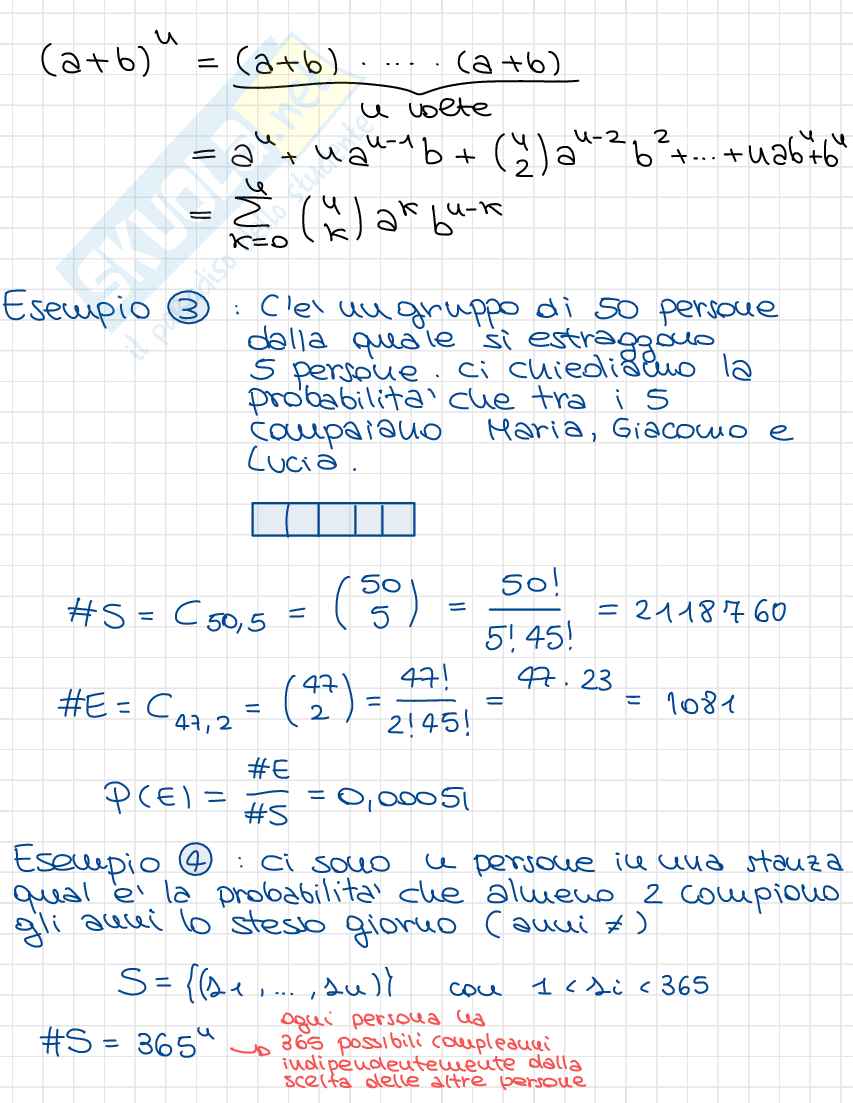 (a+b)^n = (a+b) · ... · (a+b)
n volte
= a^n + na^{n-1}b + (n 2) a^{n-2} b^2 + ... + nab^n + b^n
= Σ_{k=0}^{n} (n k) a^k b^{n-k}
Esempio ③ : C'è un gruppo di 50 persone
dalla quale si estraggono
5 persone. ci chiediamo la
probabilità che tra i 5
compaiano Maria, Giacomo e
Lucia.
#S = C_{50,5} = (50 5) = 50!/5! 45! = 2118760
#E = C_{47,2} = (47 2) = 47!/2! 45! = 47 · 23 = 1081
P(E) = #E/#S = 0,00051
Esempio ④ : ci sono n persone in una stanza
qual è la probabilità che almeno 2 compiono
gli anni lo stesso giorno (anni ≠)
S = {(s1, ..., sn)} con 1 < si < 365
ogni persona ha
#S = 365^n → 365 possibili compleanni
indipendentemente dalla
scelta delle altre persone
SKUOLA.net
il paradiso dello studente